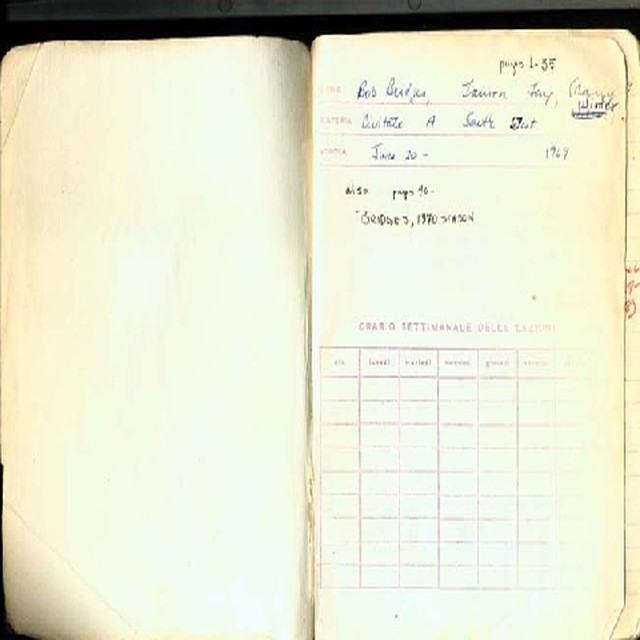 pages 1-35
Bob Bridges,
MATERIA Civitate A South East
June 20 - 1969
also pages 40-
BRIDGES, 1970 SEASON
ORARIO SETTIMANALE DELLE LEZIONI
ore lunedì martedì mercoledì giovedì venerdì